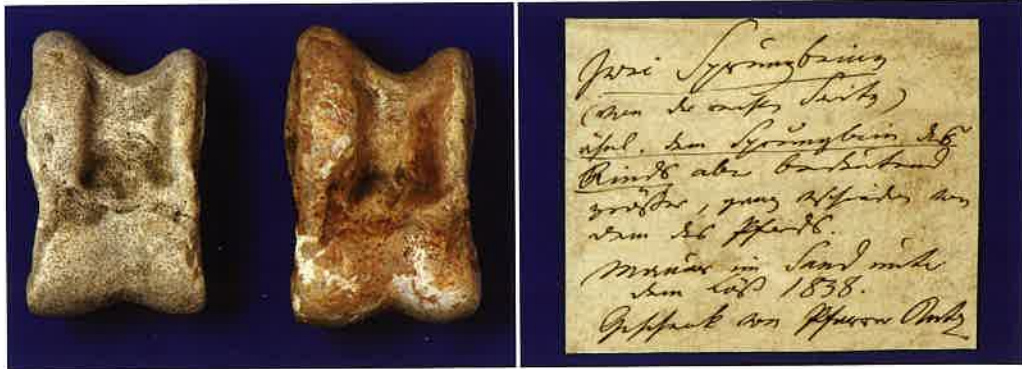 Zwei Sprungbeine
(von der rechten Seite)
ähnl. dem Sprungbein des
Rinds aber bedeutend
größer, ganz verschieden von
dem des Pferds.
Mauer im Sand unter
dem Löß 1838.
Geschenk von Pfarrer